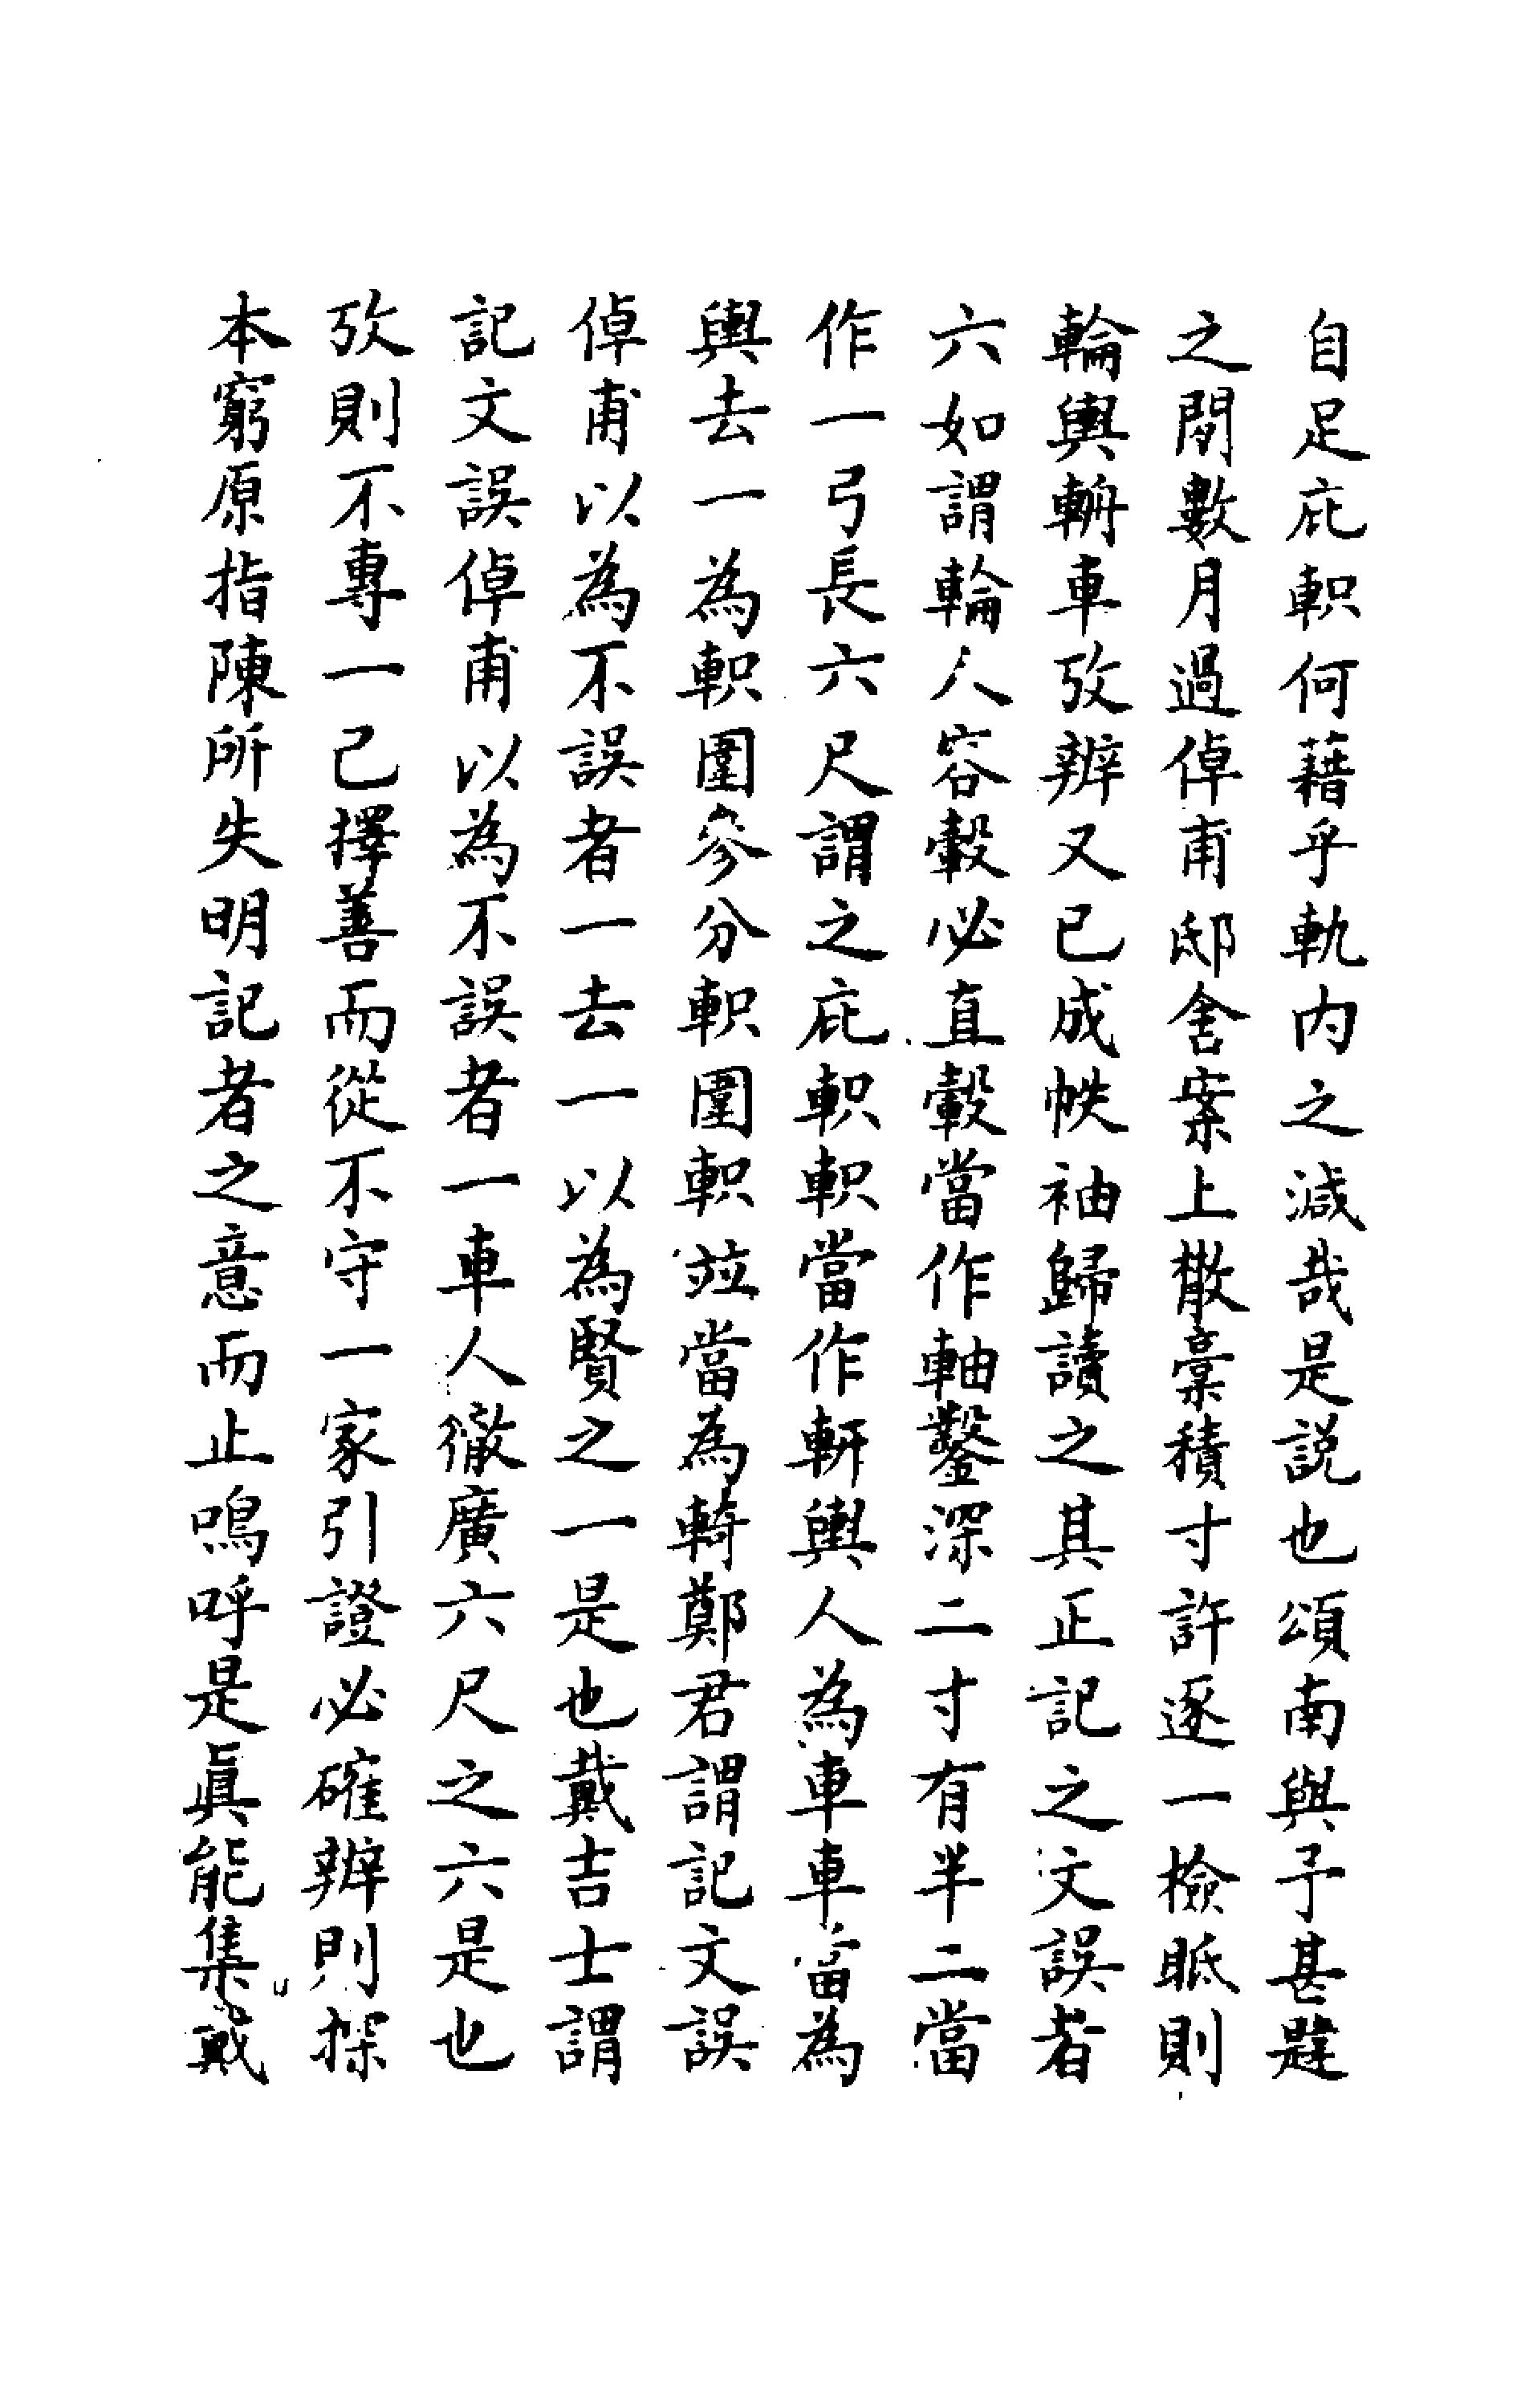 自足庇軹何藉乎軌内之減哉是説也頌南與予甚韙
之閒數月過倬甫邸舍案上橵稾積寸許逐一檢眂則
輪輿輈車攷辨又已成帙袖歸讀之其正記之文誤者
六如謂輪人容轂必直轂當作軸鑿深二寸有半二當
作一弓長六尺謂之庇軹軹當作軒輿人為車車當為
輿去一為軹圍參分軹圍軹竝當為輢鄭君謂記文誤
倬甫以為不誤者一去一以為賢之一是也戴吉士謂
記文誤倬甫以為不誤者一車人徹廣六尺之六是也
攷則不專一己擇善而從不守一家引證必確辨則探
本窮原指陳所失明記者之意而止嗚呼是眞能集戴